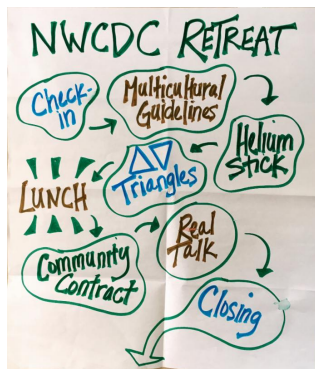 NWCDC RETREAT
Check-
in
Multicultural
Guidelines
Helium
Stick
Triangles
LUNCH
Community
Contract
Real
Talk
Closing